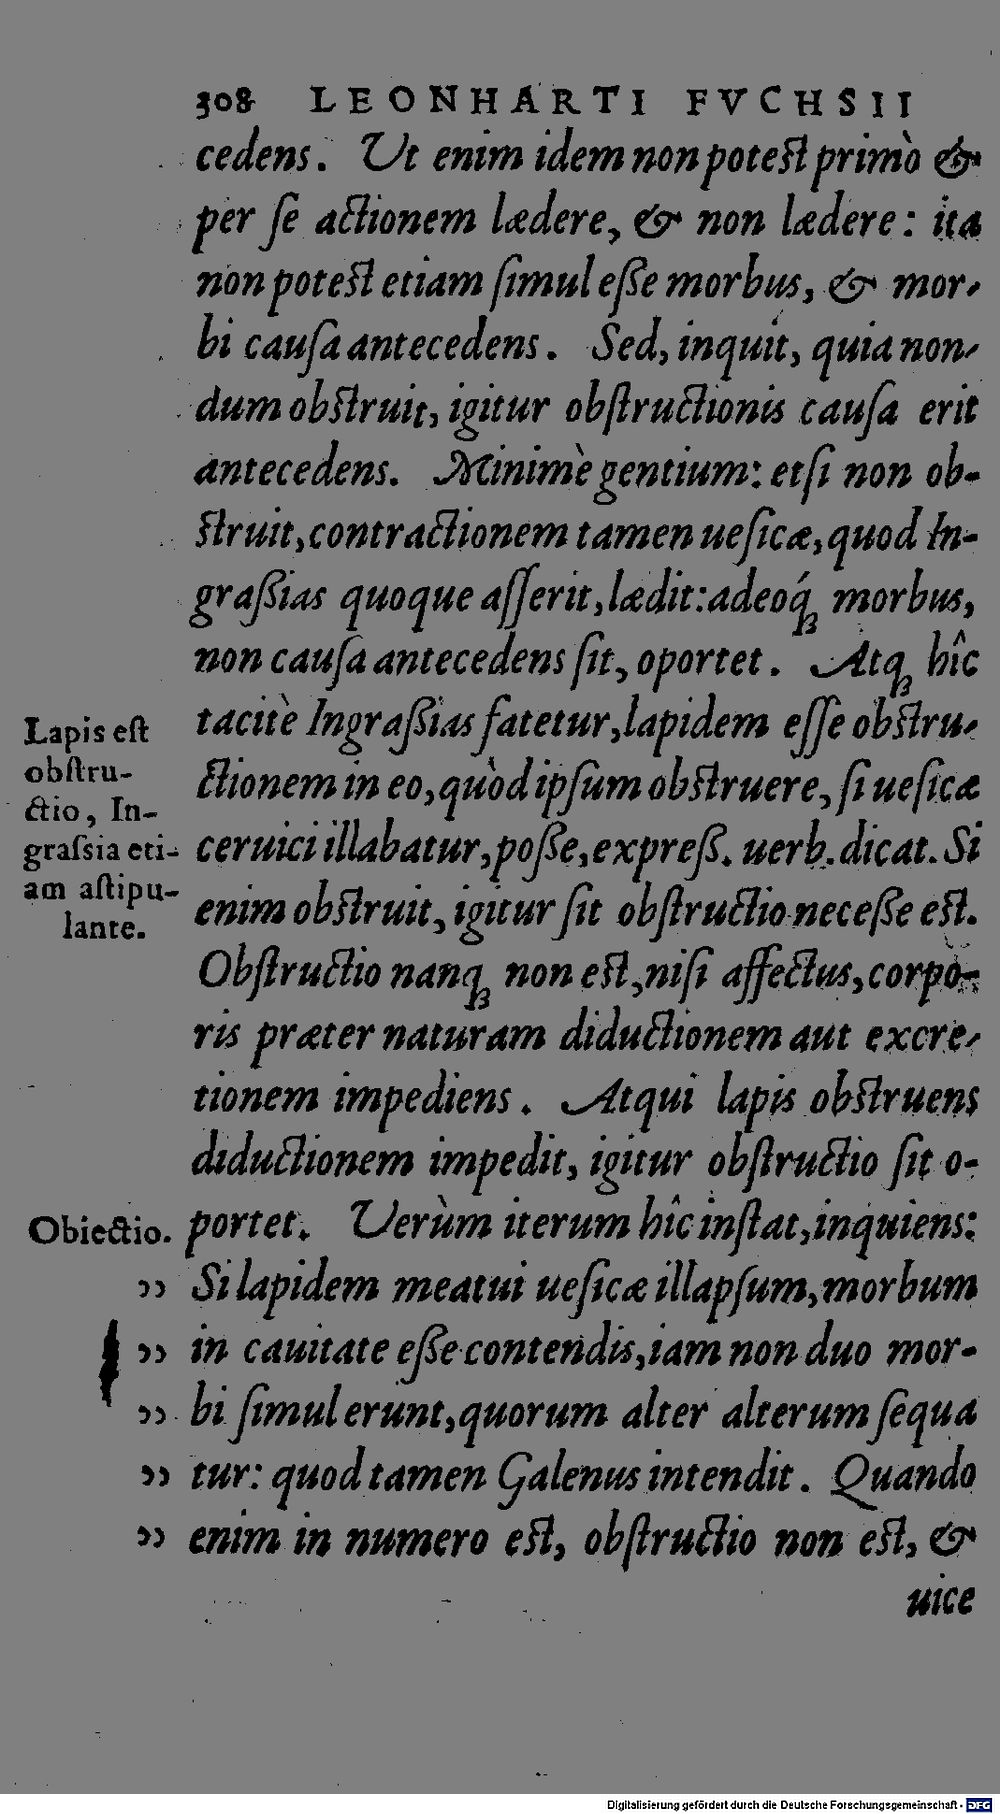 308 LEONHARTI FVCHSII
cedens. Ut enim idem non potest primò &
per ſe actionem lædere, & non lædere: ita
non potest etiam ſimul eſſe morbus, & mor-
bi cauſa antecedens. Sed, inquit, quia non-
dum obstruit, igitur obſtructionis cauſa erit
antecedens. Minimè gentium: etſi non ob-
struit, contractionem tamen ueſicæ, quod In-
graßias quoque aſſerit, lædit: adeoq́ꝫ morbus,
non cauſa antecedens ſit, oportet. Atqꝫ hîc
tacitè Ingraßias fatetur, lapidem eſſe obstru-
ctionem in eo, quòd ipſum obstruere, ſi ueſicæ
ceruici illabatur, poße, expreß. uerb. dicat. Si
enim obstruit, igitur ſit obſtructio neceße est.
Obſtructio nanqꝫ non est, niſi affectus, corpo-
ris præter naturam diductionem aut excre-
tionem impediens. Atqui lapis obstruens
diductionem impedit, igitur obſtructio ſit o-
portet. Uerùm iterum hîc inſtat, inquiens:
Si lapidem meatui ueſicæ illapſum, morbum
in cauitate eße contendis, iam non duo mor-
bi ſimul erunt, quorum alter alterum ſequa
tur: quod tamen Galenus intendit. Quando
enim in numero est, obſtructio non est, &
uice
Lapis eſt
obſtru-
ctio, In-
graſsia eti-
am aſtipu-
lante.
Obiectio.
ככ
ככ
ככ
ככ
ככ
Digitalisierung gefördert durch die Deutsche Forschungsgemeinschaft - DFG